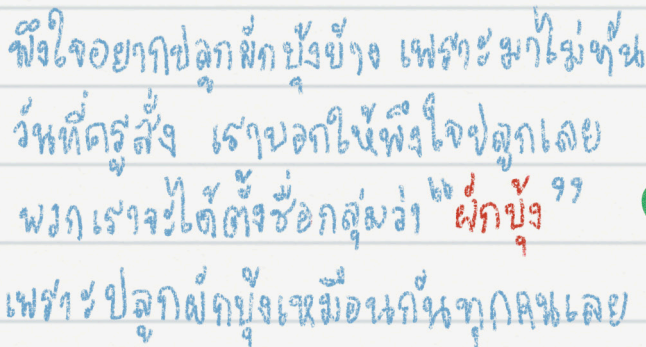 พึงใจอยากปลูกผักบุ้งบ้าง เพราะมาไม่ทัน
วันที่ครูสั่ง เราบอกให้พึงใจปลูกเลย
พวกเราจะได้ตั้งชื่อกลุ่มว่า "ผักบุ้ง"
เพราะปลูกผักบุ้งเหมือนกันทุกคนเลย